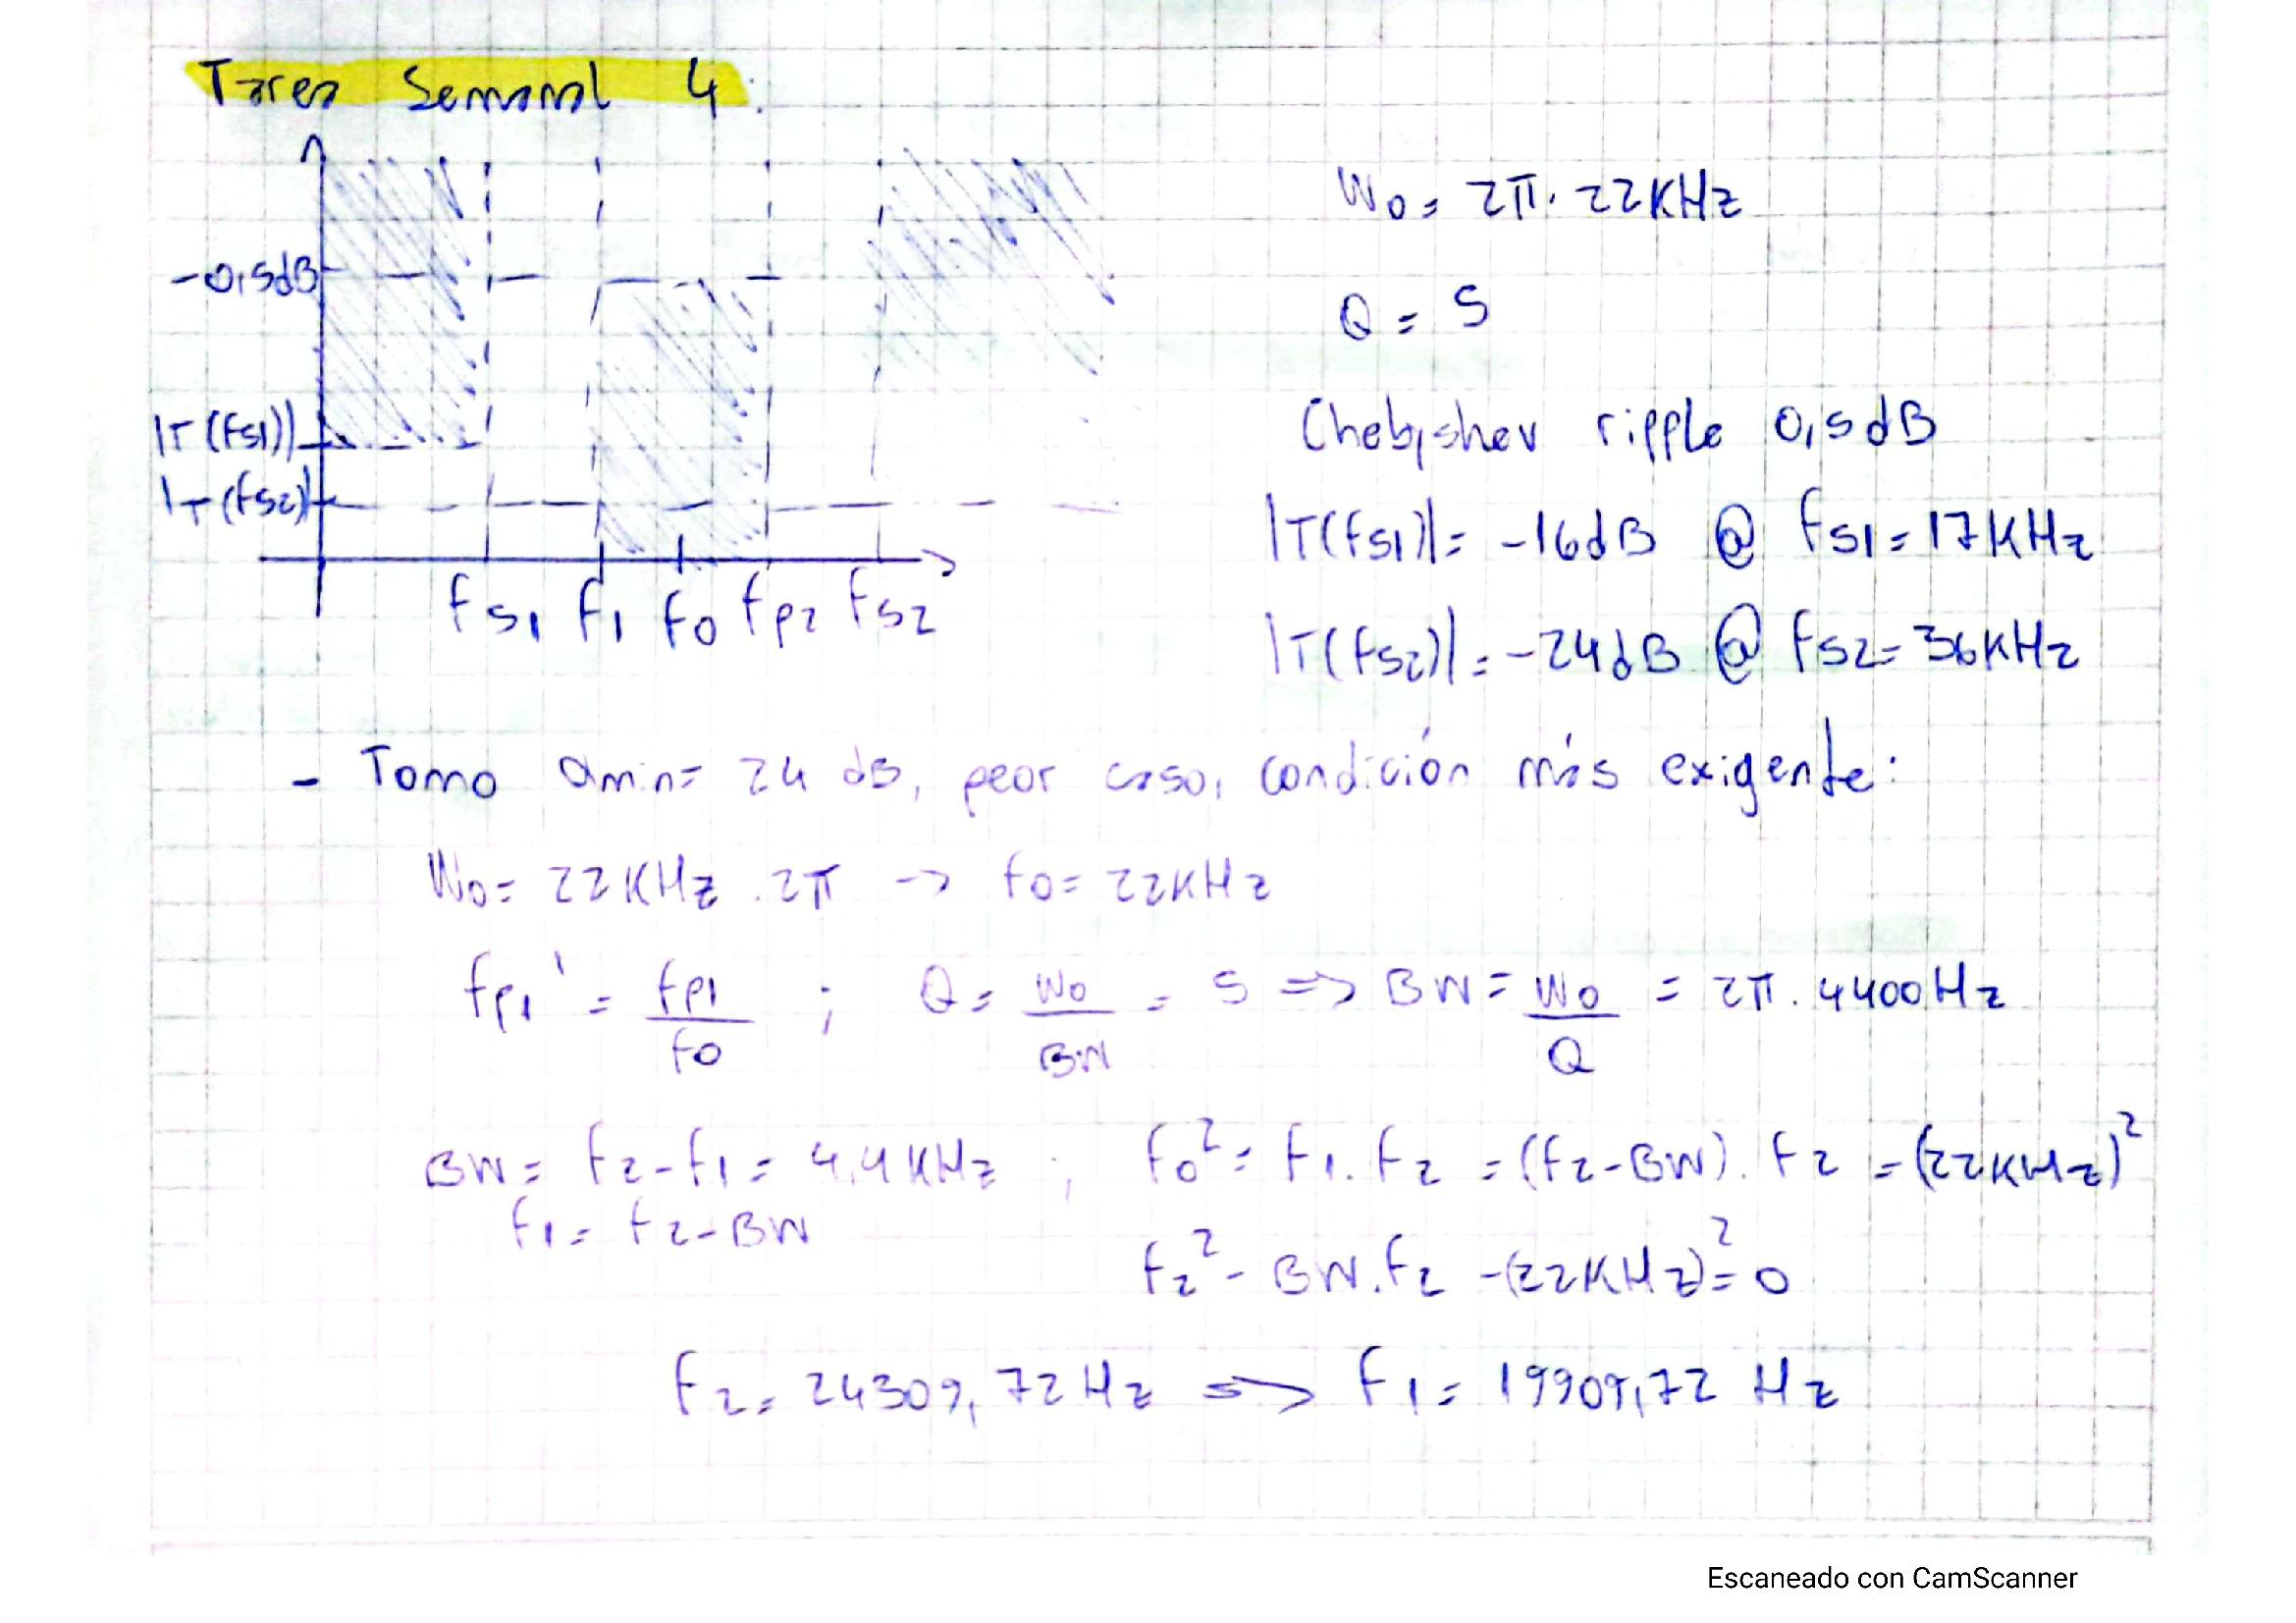 Tarea Semanal 4:
-0,5dB
|T(fs1)|
|T(fs2)|
fs1 f1 f0 fp2 fs2
W0 = 2π. 22KHz
Q = 5
Chebyshev ripple 0,5dB
|T(fs1)| = -16dB @ fs1 = 17KHz
|T(fs2)| = -24dB @ fs2 = 36KHz
- Tomo αmin = 24 dB, peor caso, condición más exigente:
W0 = 22KHz .2π -> f0 = 22KHz
fp1' = fp1/f0 ; Q = W0/BW = 5 => BW = W0/Q = 2π. 4400Hz
BW = f2-f1 = 4,4KHz ; f0² = f1.f2 = (f2-BW). f2 = (22KHz)²
f1 = f2-BW
f2² - BW.f2 -(22KHz)² = 0
f2 = 24309,72Hz => f1 = 19909,72 Hz
Escaneado con CamScanner